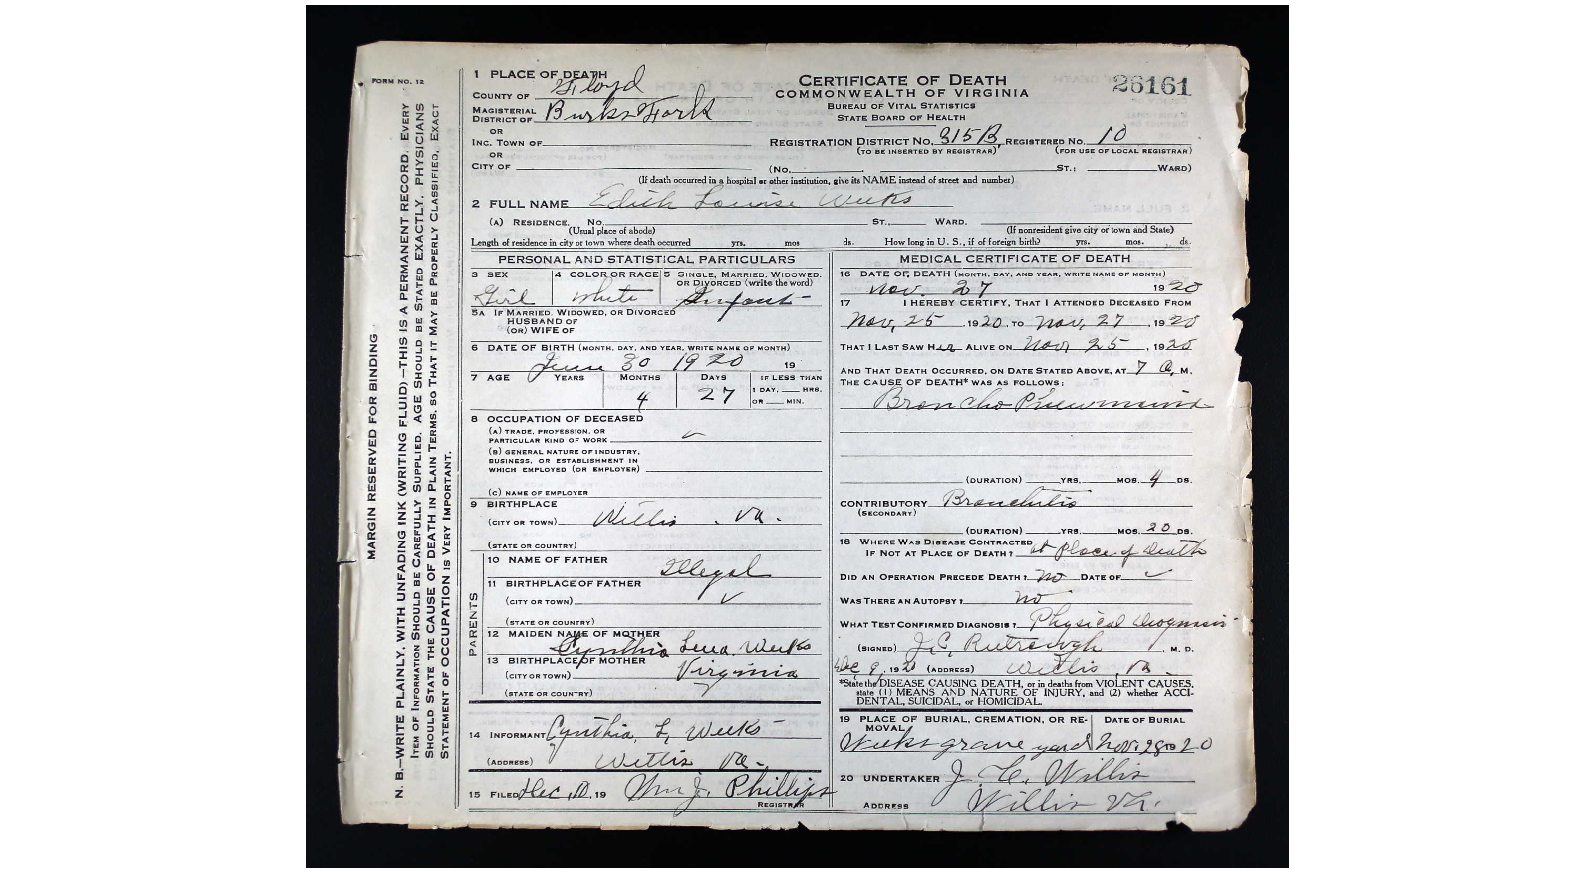 FORM NO. 12
MARGIN RESERVED FOR BINDING
N. B.—WRITE PLAINLY, WITH UNFADING INK (WRITING FLUID)—THIS IS A PERMANENT RECORD. EVERY
ITEM OF INFORMATION SHOULD BE CAREFULLY SUPPLIED. AGE SHOULD BE STATED EXACTLY. PHYSICIANS
SHOULD STATE THE CAUSE OF DEATH IN PLAIN TERMS, SO THAT IT MAY BE PROPERLY CLASSIFIED. EXACT
STATEMENT OF OCCUPATION IS VERY IMPORTANT.
1 PLACE OF DEATH
COUNTY OF Floyd
MAGISTERIAL DISTRICT OF Burks Fork
OR
INC. TOWN OF
OR
CITY OF
CERTIFICATE OF DEATH
COMMONWEALTH OF VIRGINIA
BUREAU OF VITAL STATISTICS
STATE BOARD OF HEALTH
26161
REGISTRATION DISTRICT NO. 315B REGISTERED NO. 10
(TO BE INSERTED BY REGISTRAR) (FOR USE OF LOCAL REGISTRAR)
(No. ST.: WARD)
(If death occurred in a hospital or other institution, give its NAME instead of street and number)
2 FULL NAME Edith Louise Weeks
(A) RESIDENCE. No. ST., WARD.
(Usual place of abode) (If nonresident give city or town and State)
Length of residence in city or town where death occurred yrs. mos ds. How long in U. S., if of foreign birth? yrs. mos. ds.
PERSONAL AND STATISTICAL PARTICULARS
3 SEX 4 COLOR OR RACE 5 SINGLE, MARRIED, WIDOWED, OR DIVORCED (write the word)
Girl White Infant
5A IF MARRIED, WIDOWED, OR DIVORCED
HUSBAND OF
(OR) WIFE OF
6 DATE OF BIRTH (MONTH, DAY, AND YEAR, WRITE NAME OF MONTH)
June 30 1920 19
7 AGE YEARS MONTHS DAYS IF LESS THAN
1 DAY, HRS.
4 27 OR MIN.
8 OCCUPATION OF DECEASED
(A) TRADE, PROFESSION, OR
PARTICULAR KIND OF WORK
(B) GENERAL NATURE OF INDUSTRY,
BUSINESS, OR ESTABLISHMENT IN
WHICH EMPLOYED (OR EMPLOYER)
(C) NAME OF EMPLOYER
9 BIRTHPLACE
(CITY OR TOWN) Willis. Va.
(STATE OR COUNTRY)
PARENTS
10 NAME OF FATHER Illegal
11 BIRTHPLACE OF FATHER
(CITY OR TOWN)
(STATE OR COUNTRY)
12 MAIDEN NAME OF MOTHER
Cynthia Lena Weeks
13 BIRTHPLACE OF MOTHER
(CITY OR TOWN) Virginia
(STATE OR COUNTRY)
14 INFORMANT Cynthia L. Weeks
(ADDRESS) Willis Va.
15 FILED Dec. 10, 19 Wm J. Phillips
REGISTRAR
MEDICAL CERTIFICATE OF DEATH
16 DATE OF DEATH (MONTH, DAY, AND YEAR, WRITE NAME OF MONTH)
Nov. 27 1920
17 I HEREBY CERTIFY, THAT I ATTENDED DECEASED FROM
Nov, 25, 1920, TO Nov, 27, 1920
THAT I LAST SAW Her ALIVE ON Nov 25, 1920
AND THAT DEATH OCCURRED, ON DATE STATED ABOVE, AT 7 A. M.
THE CAUSE OF DEATH* WAS AS FOLLOWS:
Broncho Pneumonia
(DURATION) YRS. MOS. 4 DS.
CONTRIBUTORY Bronchitis
(SECONDARY)
(DURATION) YRS. MOS. 20 DS.
18 WHERE WAS DISEASE CONTRACTED
IF NOT AT PLACE OF DEATH? at Place of Death
DID AN OPERATION PRECEDE DEATH? No DATE OF
WAS THERE AN AUTOPSY? No
WHAT TEST CONFIRMED DIAGNOSIS? Physical diagnosis
(SIGNED) J. C. Rutrough M. D.
Dec 9, 1920 (ADDRESS) Willis Va.
*State the DISEASE CAUSING DEATH, or in deaths from VIOLENT CAUSES,
state (1) MEANS AND NATURE OF INJURY, and (2) whether ACCI-
DENTAL, SUICIDAL, or HOMICIDAL.
19 PLACE OF BURIAL, CREMATION, OR RE- DATE OF BURIAL
MOVAL
Weeks grave yard Nov. 28 1920
20 UNDERTAKER J. C. Willis
ADDRESS Willis Va.